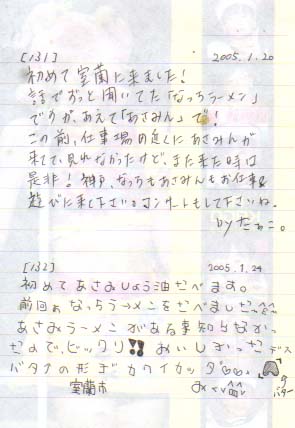 [131] 2005.1.20
初めて室蘭に来ました!
話でずっと聞いてた「なっちラーメン」
ですが、あえて「あさみん」で!
この前、仕事場の近くにあさみんが
来てて、見れなかったけど、また来た時は
是非!神戸、なっちもあさみんもお仕事&
遊びに来て下さい。コンサートもして下さいね。
by たぁこ。
[132] 2005.1.24
初めてあさみしょう油たべます。
前回ゎなっちラーメンをたべました
あさみラーメンがある事知らなか
ったので、ビックリ!!おいしかったデス
バタアの形ガカワイカッタ
室蘭市 のバター